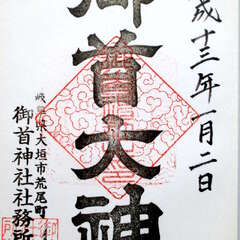 成十三年一月二日
御首大神
岐阜県大垣市荒尾町
御首神社社務所